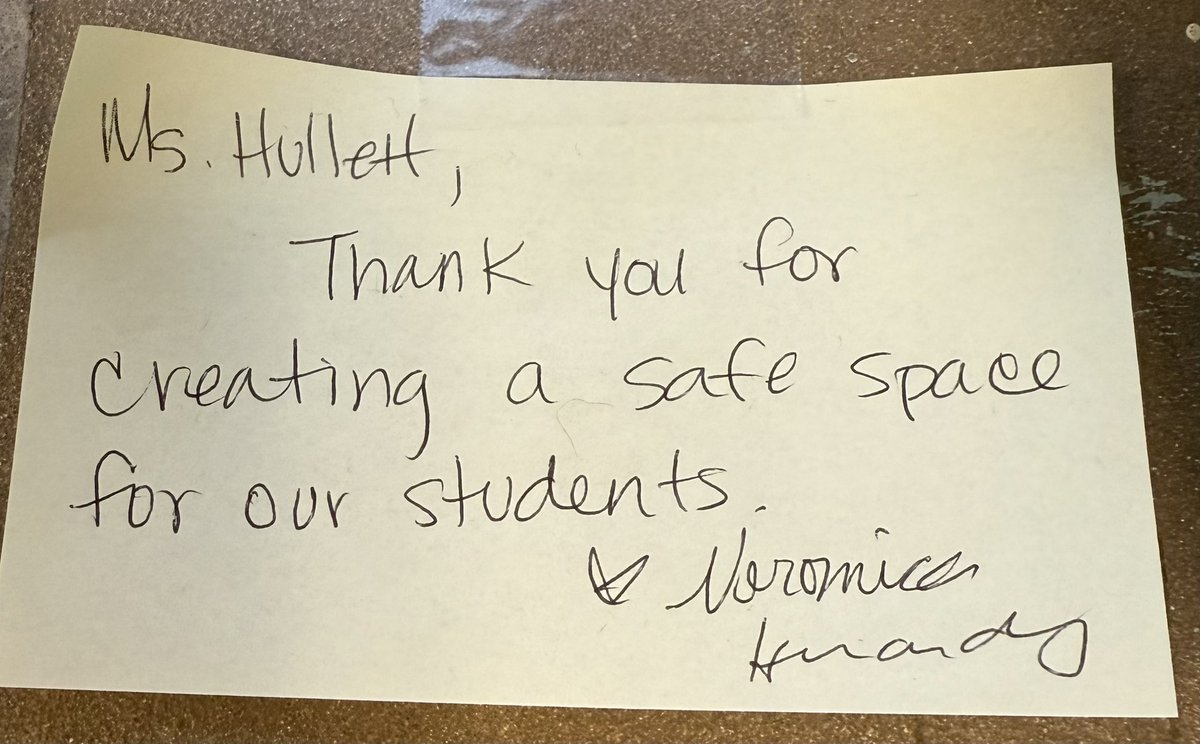 Ms. Hullett,
Thank you for
creating a safe space
for our students.
Veronica